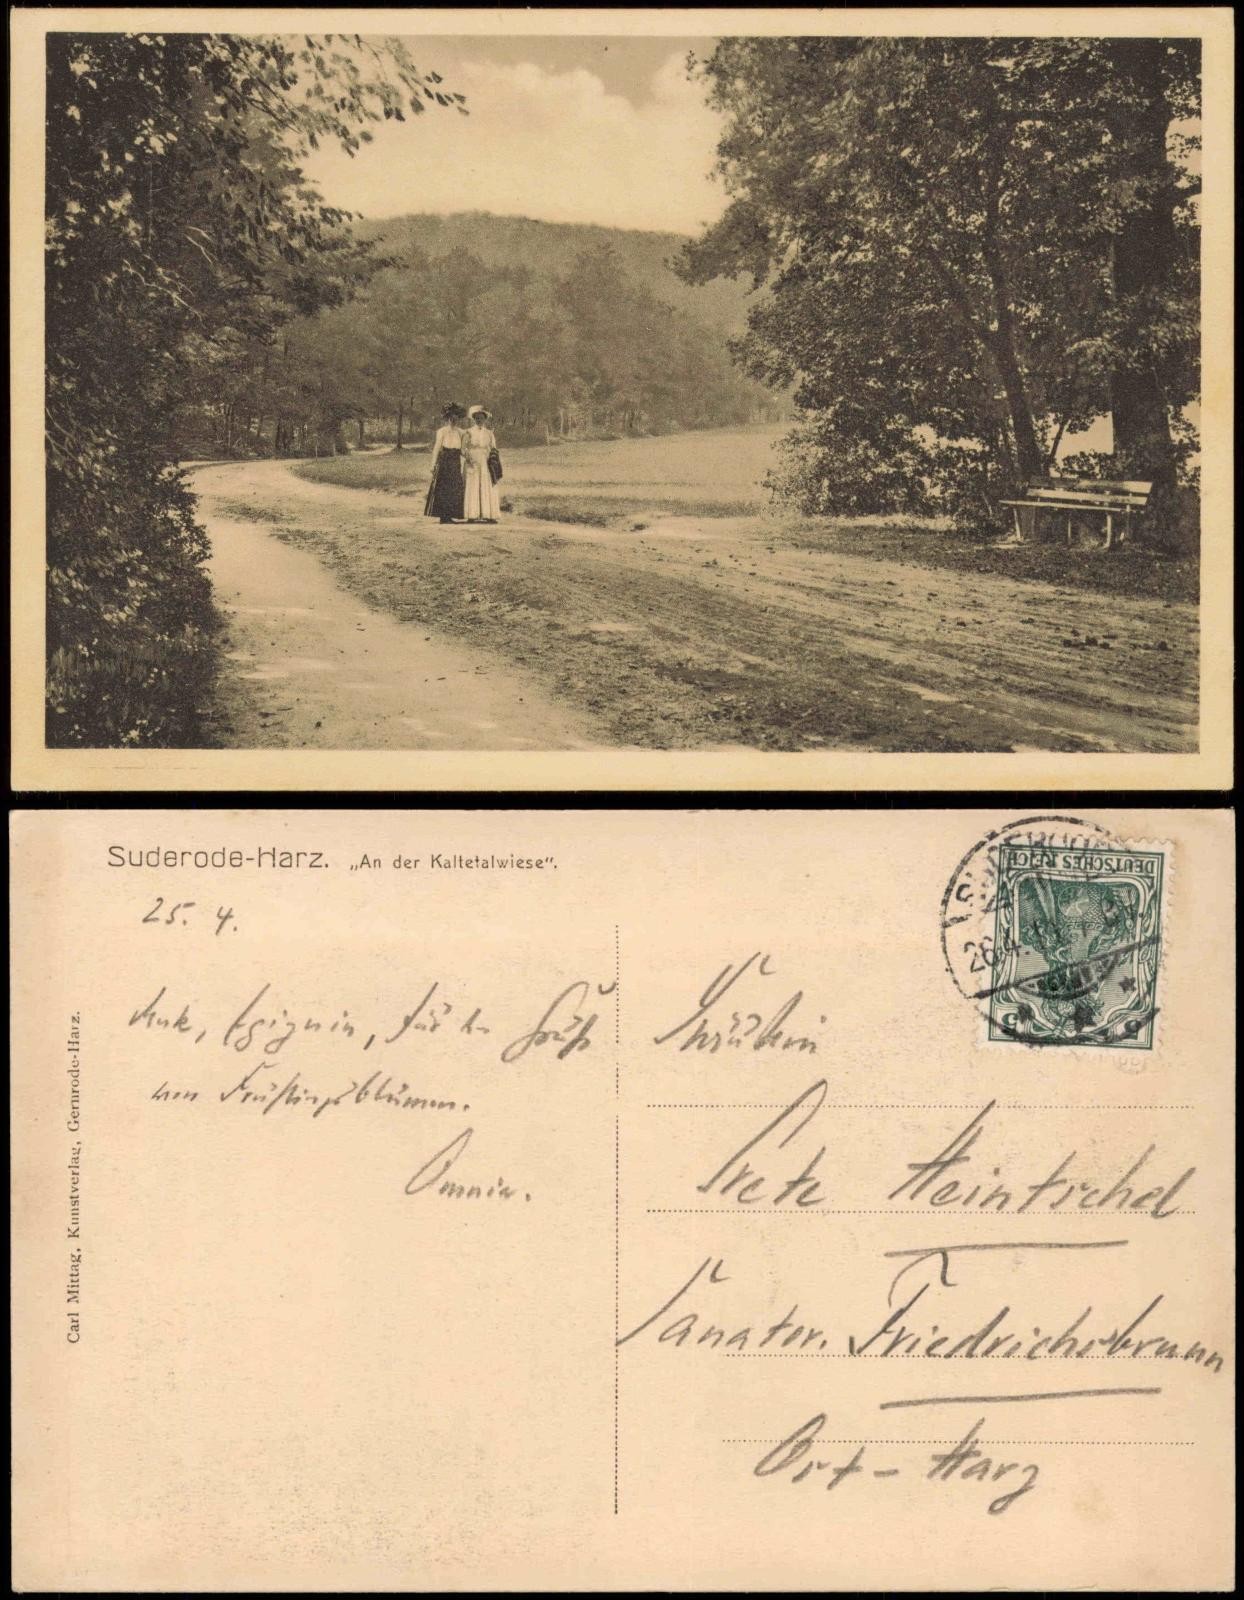 Suderode-Harz. „An der Kaltetalwiese“.
25. 4.
von Frühlingsblumen.
Carl Mittag, Kunstverlag, Gernrode-Harz.
DEUTSCHES REICH
5 5
26.4.
Fräulein
Grete Heintschel
Sanator. Friedrichsbrunn
Ost-Harz